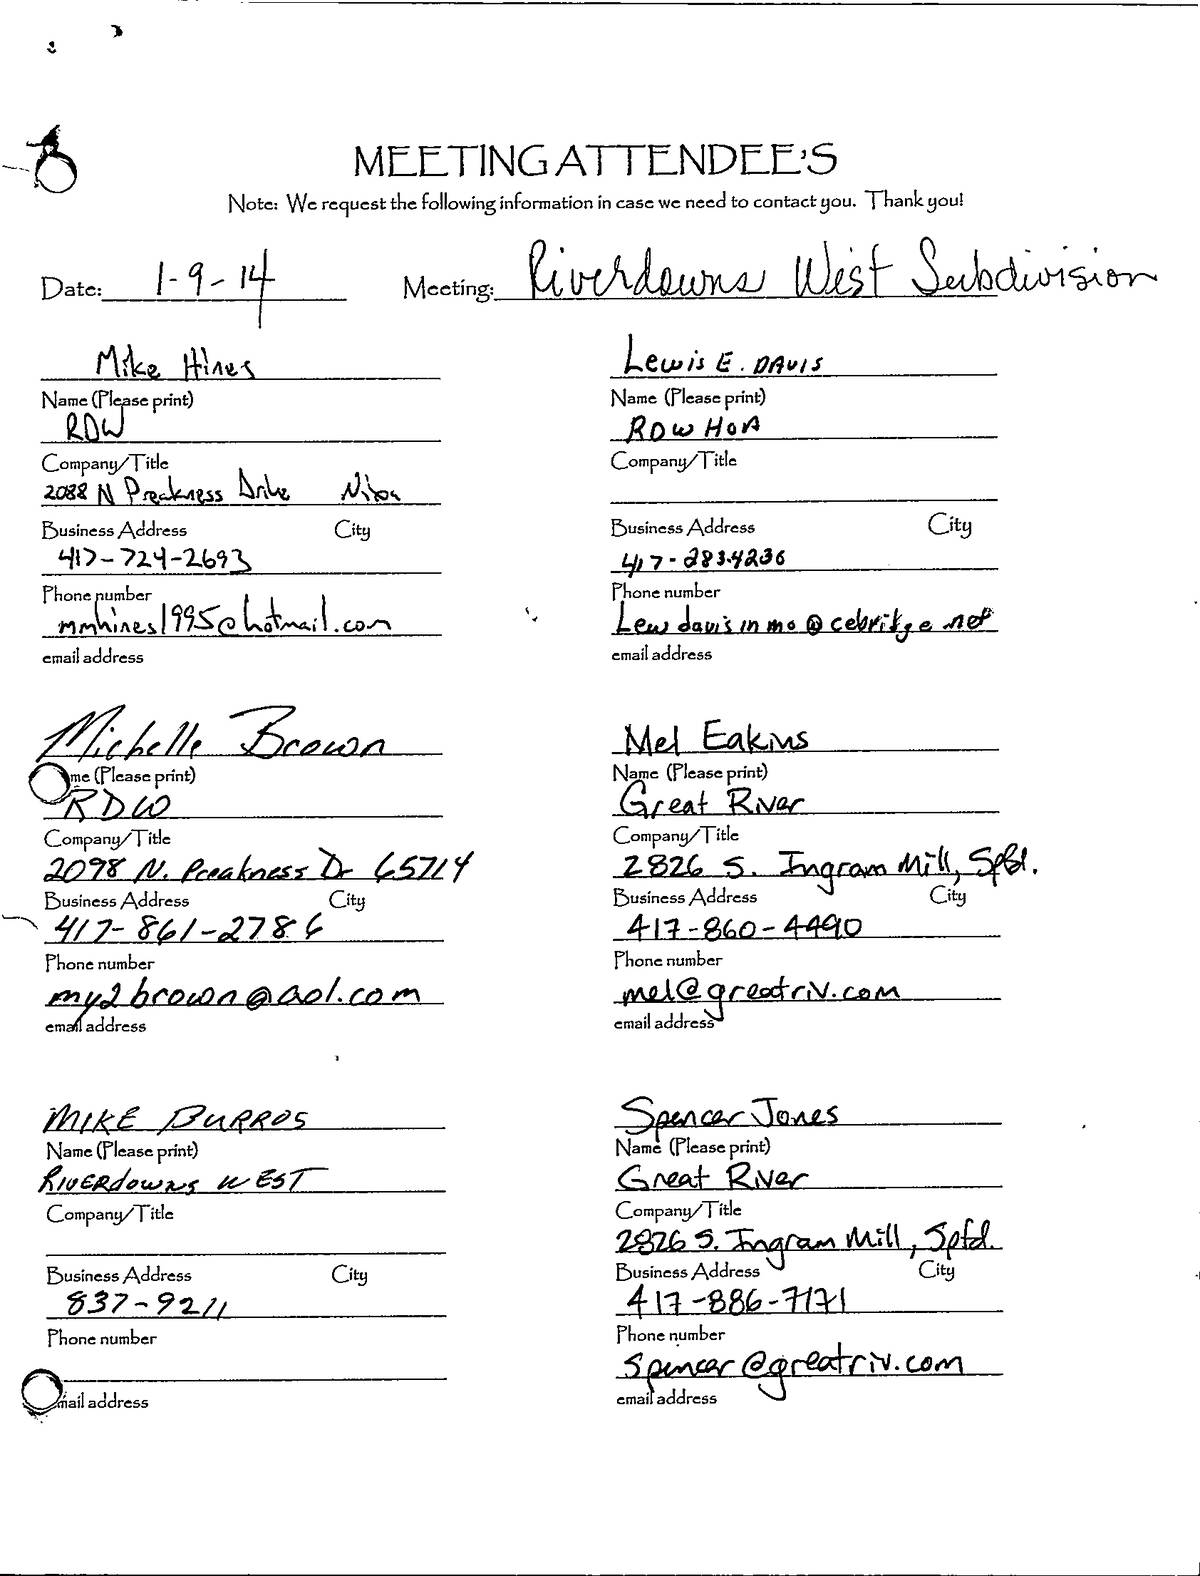 MEETING ATTENDEE'S
Note: We request the following information in case we need to contact you. Thank you!
Date: 1-9-14 Meeting: Riverdowns West Subdivision
Mike Hines
Name (Please print)
RDW
Company/Title
2088 N Preakness Drive Nixa
Business Address City
417-724-2693
Phone number
mmhines1995@hotmail.com
email address
Lewis E. DAVIS
Name (Please print)
RDW HOA
Company/Title
Business Address City
417-283-4236
Phone number
Lewdavisinmo@cebridge.net
email address
Michelle Brown
me (Please print)
RDW
Company/Title
2098 N. Preakness Dr 65714
Business Address City
417-861-2786
Phone number
my2brown@aol.com
email address
Mel Eakins
Name (Please print)
Great River
Company/Title
2826 S. Ingram Mill, Spfd.
Business Address City
417-860-4490
Phone number
mel@greatriv.com
email address
MIKE BURROS
Name (Please print)
RIVERdowns WEST
Company/Title
Business Address City
837-9211
Phone number
mail address
Spencer Jones
Name (Please print)
Great River
Company/Title
2826 S. Ingram Mill, Spfd.
Business Address City
417-886-7171
Phone number
spencer@greatriv.com
email address